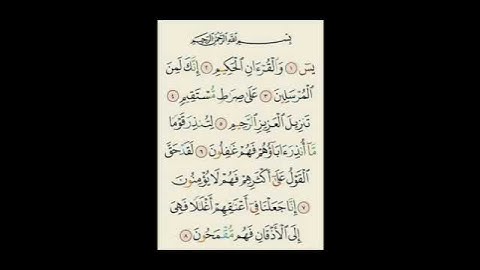 بِسْمِ اللَّهِ الرَّحْمَٰنِ الرَّحِيمِ
يسٓ ۝١ وَالْقُرْءَانِ الْحَكِيمِ ۝٢ إِنَّكَ لَمِنَ
الْمُرْسَلِينَ ۝٣ عَلَىٰ صِرَٰطٍ مُّسْتَقِيمٍ ۝٤
تَنزِيلَ الْعَزِيزِ الرَّحِيمِ ۝٥ لِتُنذِرَ قَوْمًا
مَّآ أُنذِرَ ءَابَآؤُهُمْ فَهُمْ غَٰفِلُونَ ۝٦ لَقَدْ حَقَّ
الْقَوْلُ عَلَىٰٓ أَكْثَرِهِمْ فَهُمْ لَا يُؤْمِنُونَ
۝٧ إِنَّا جَعَلْنَا فِىٓ أَعْنَٰقِهِمْ أَغْلَٰلًا فَهِىَ
إِلَى الْأَذْقَانِ فَهُم مُّقْمَحُونَ ۝٨